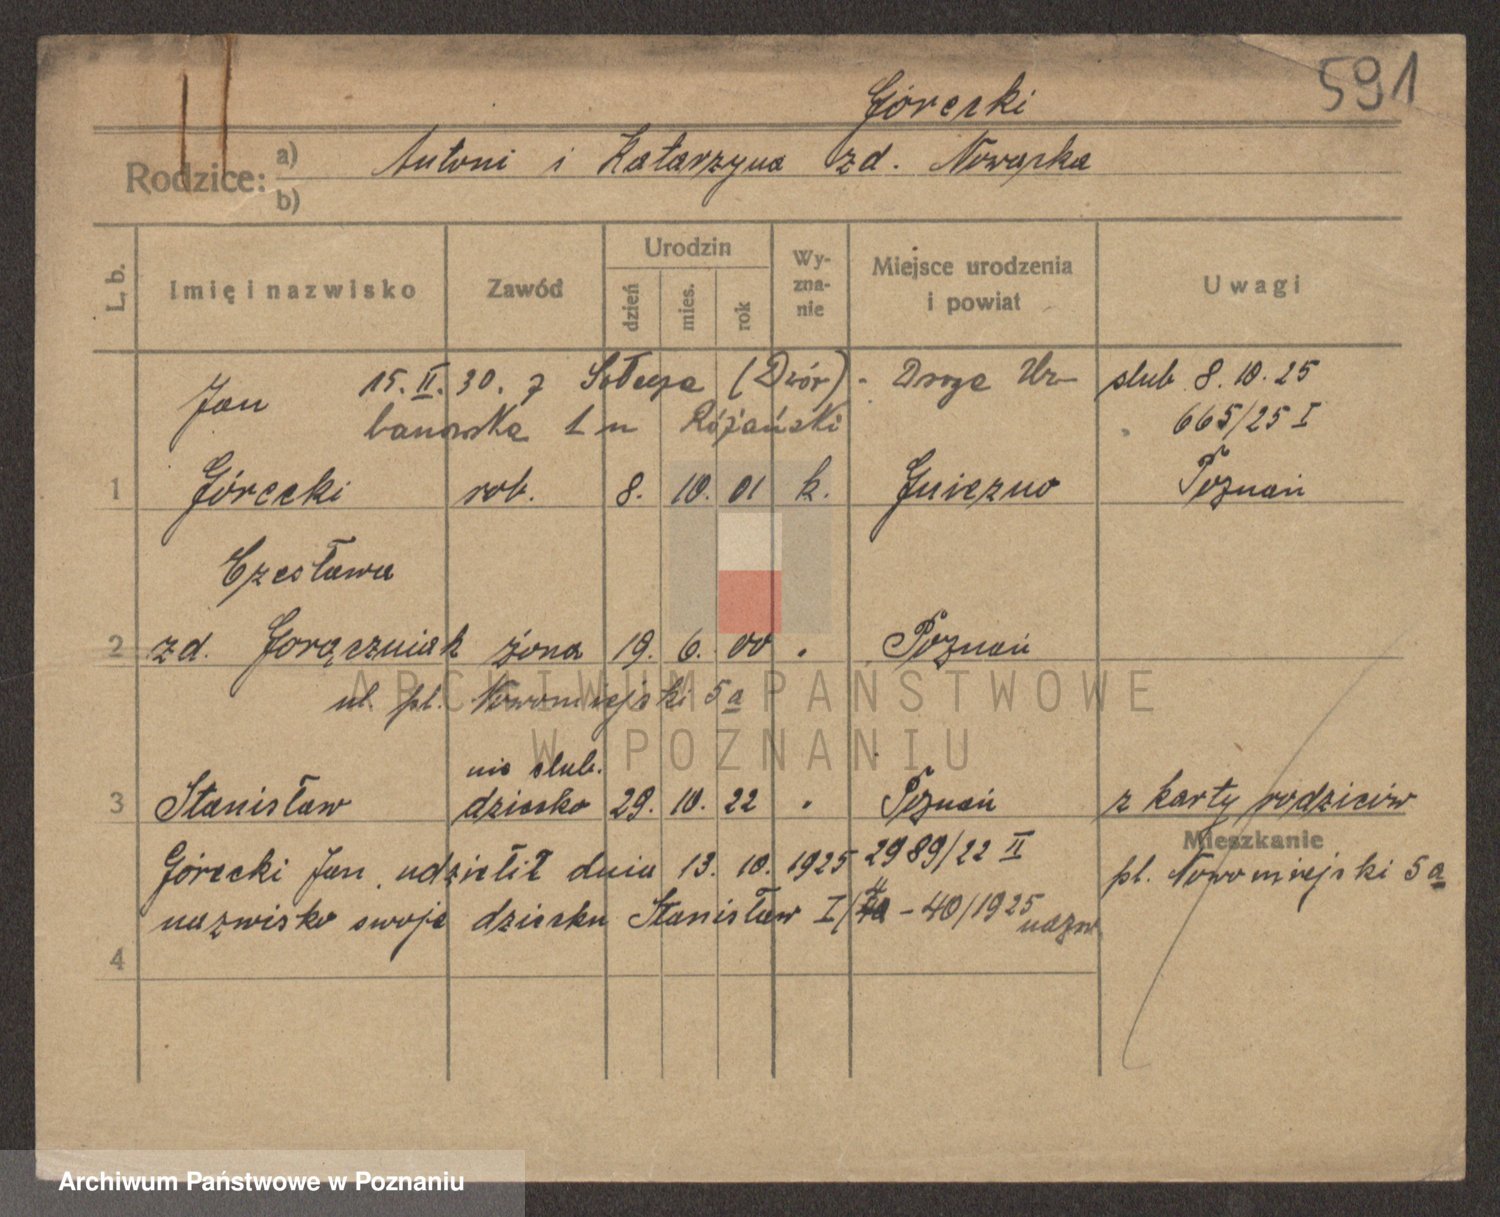 591
Górecki
Rodzice: a) Antoni i Katarzyna zd. Nowaska
b)
L. b. Imię i nazwisko Zawód Urodzin dzień mies. rok Wyznanie Miejsce urodzenia i powiat Uwagi
Jan 15. II. 30. z Sołacza (Dwór) - Droga Ur- ślub 8. 10. 25
banowska 1 u Różański 665/25 I
1 Górecki rob. 8. 10. 01 k. Gniezno Poznań
Czesława
2 zd. Gorączniak żona 19. 6. 00 " Poznań
ul. pl. Nowomiejski 5a
nie ślub.
3 Stanisław dziecko 29. 10. 22 " Poznań z karty rodziców
Mieszkanie
Górecki Jan udzielił dnia 13. 10. 1925 2989/22 II pl. Nowomiejski 5a
nazwisko swoje dziecku Stanisław I/ - 40/1925 nazw.
4
ARCHIWUM PAŃSTWOWE
W POZNANIU
Archiwum Państwowe w Poznaniu